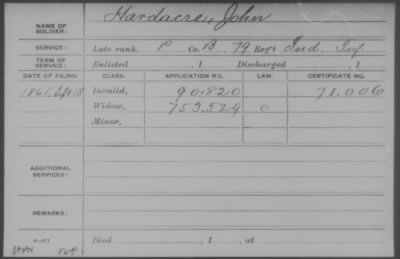 NAME OF SOLDIER: Hardacre, John
SERVICE: Late rank, P Co. B, 79 Reg't Ind. Inf
TERM OF SERVICE: Enlisted , 1 Discharged , 1
DATE OF FILING. CLASS. APPLICATION NO. LAW. CERTIFICATE NO.
1865 Invalid, 90.820 71.006
Widow, 753.529
Minor,
ADDITIONAL SERVICES:
REMARKS:
Died , 1 , at